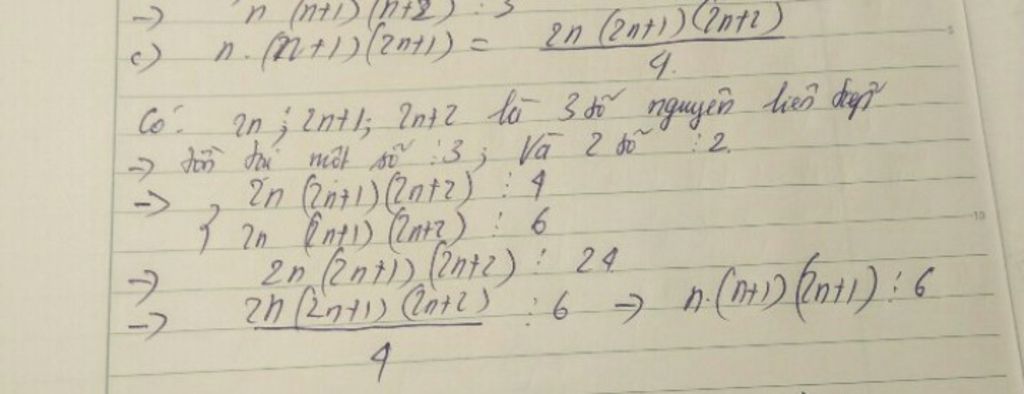 → n (n+1)(n+2) ⋮ 3
c) n.(n+1)(2n+1) = 2n(2n+1)(2n+2) / 4.
Có: 2n; 2n+1; 2n+2 là 3 số nguyên liên tiếp
→ tồn tại một số ⋮ 3; Và 2 số ⋮ 2.
→ { 2n (2n+1)(2n+2) ⋮ 4
2n (2n+1)(2n+2) ⋮ 6
→ 2n (2n+1)(2n+2) ⋮ 24
→ 2n(2n+1)(2n+2) / 4 ⋮ 6 → n.(n+1)(2n+1) ⋮ 6